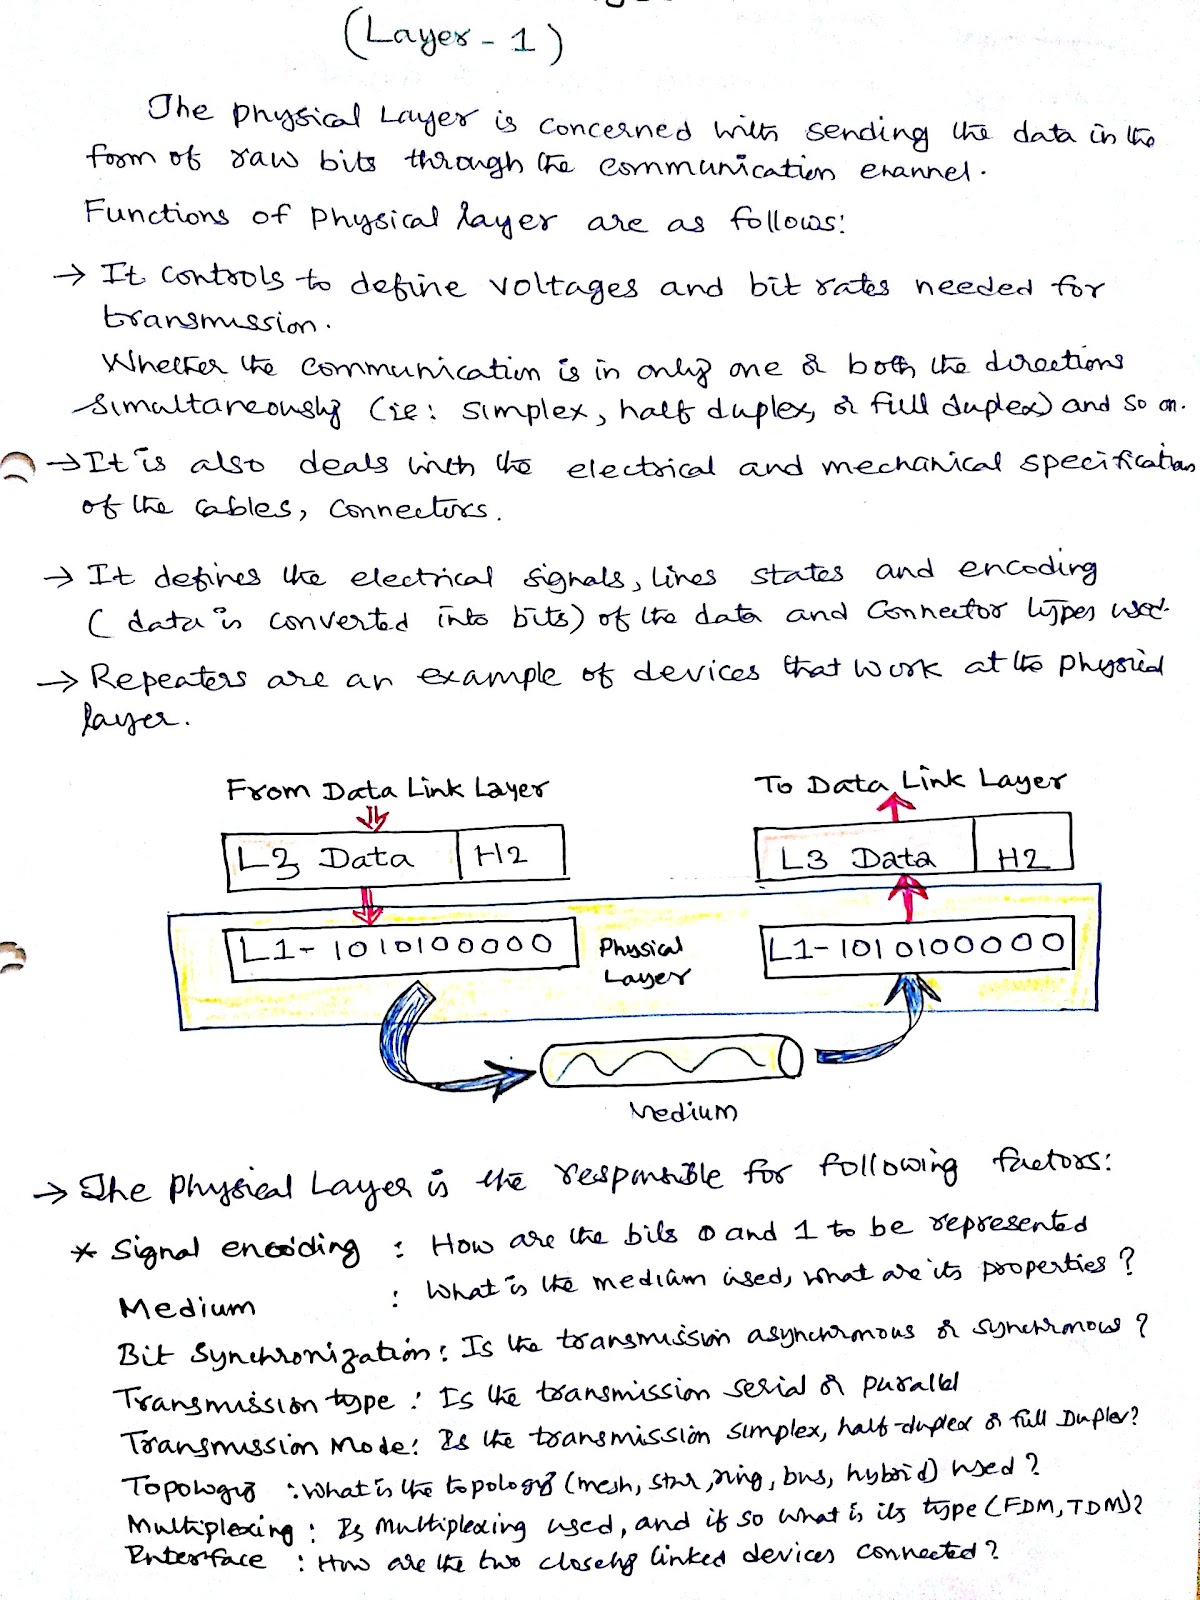 (Layer - 1)
The physical Layer is concerned with sending the data in the
form of raw bits through the communication channel.
Functions of physical layer are as follows:
→ It controls to define voltages and bit rates needed for
transmission.
Whether the communication is in only one or both the directions
simultaneously (ie: simplex, half duplex, or full duplex) and so on.
→ It is also deals with the electrical and mechanical specification
of the cables, connectors.
→ It defines the electrical signals, lines states and encoding
( data is converted into bits) of the data and Connector types used.
→ Repeaters are an example of devices that work at the physical
layer.
From Data Link Layer
To Data Link Layer
L3 Data H2
L3 Data H2
L1-1010100000
Physical
Layer
L1-1010100000
Medium
→ The physical Layer is the responsible for following factors:
* Signal encoding : How are the bits 0 and 1 to be represented
Medium : What is the medium used, what are its properties?
Bit Synchronization: Is the transmission asynchronous or synchronous?
Transmission type : Is the transmission serial or parallel
Transmission Mode: Is the transmission simplex, half-duplex or full Duplex?
Topology : What is the topology (mesh, star, ring, bus, hybrid) used?
Multiplexing : Is multiplexing used, and if so what is its type (FDM, TDM)?
Interface : How are the two closely linked devices connected?